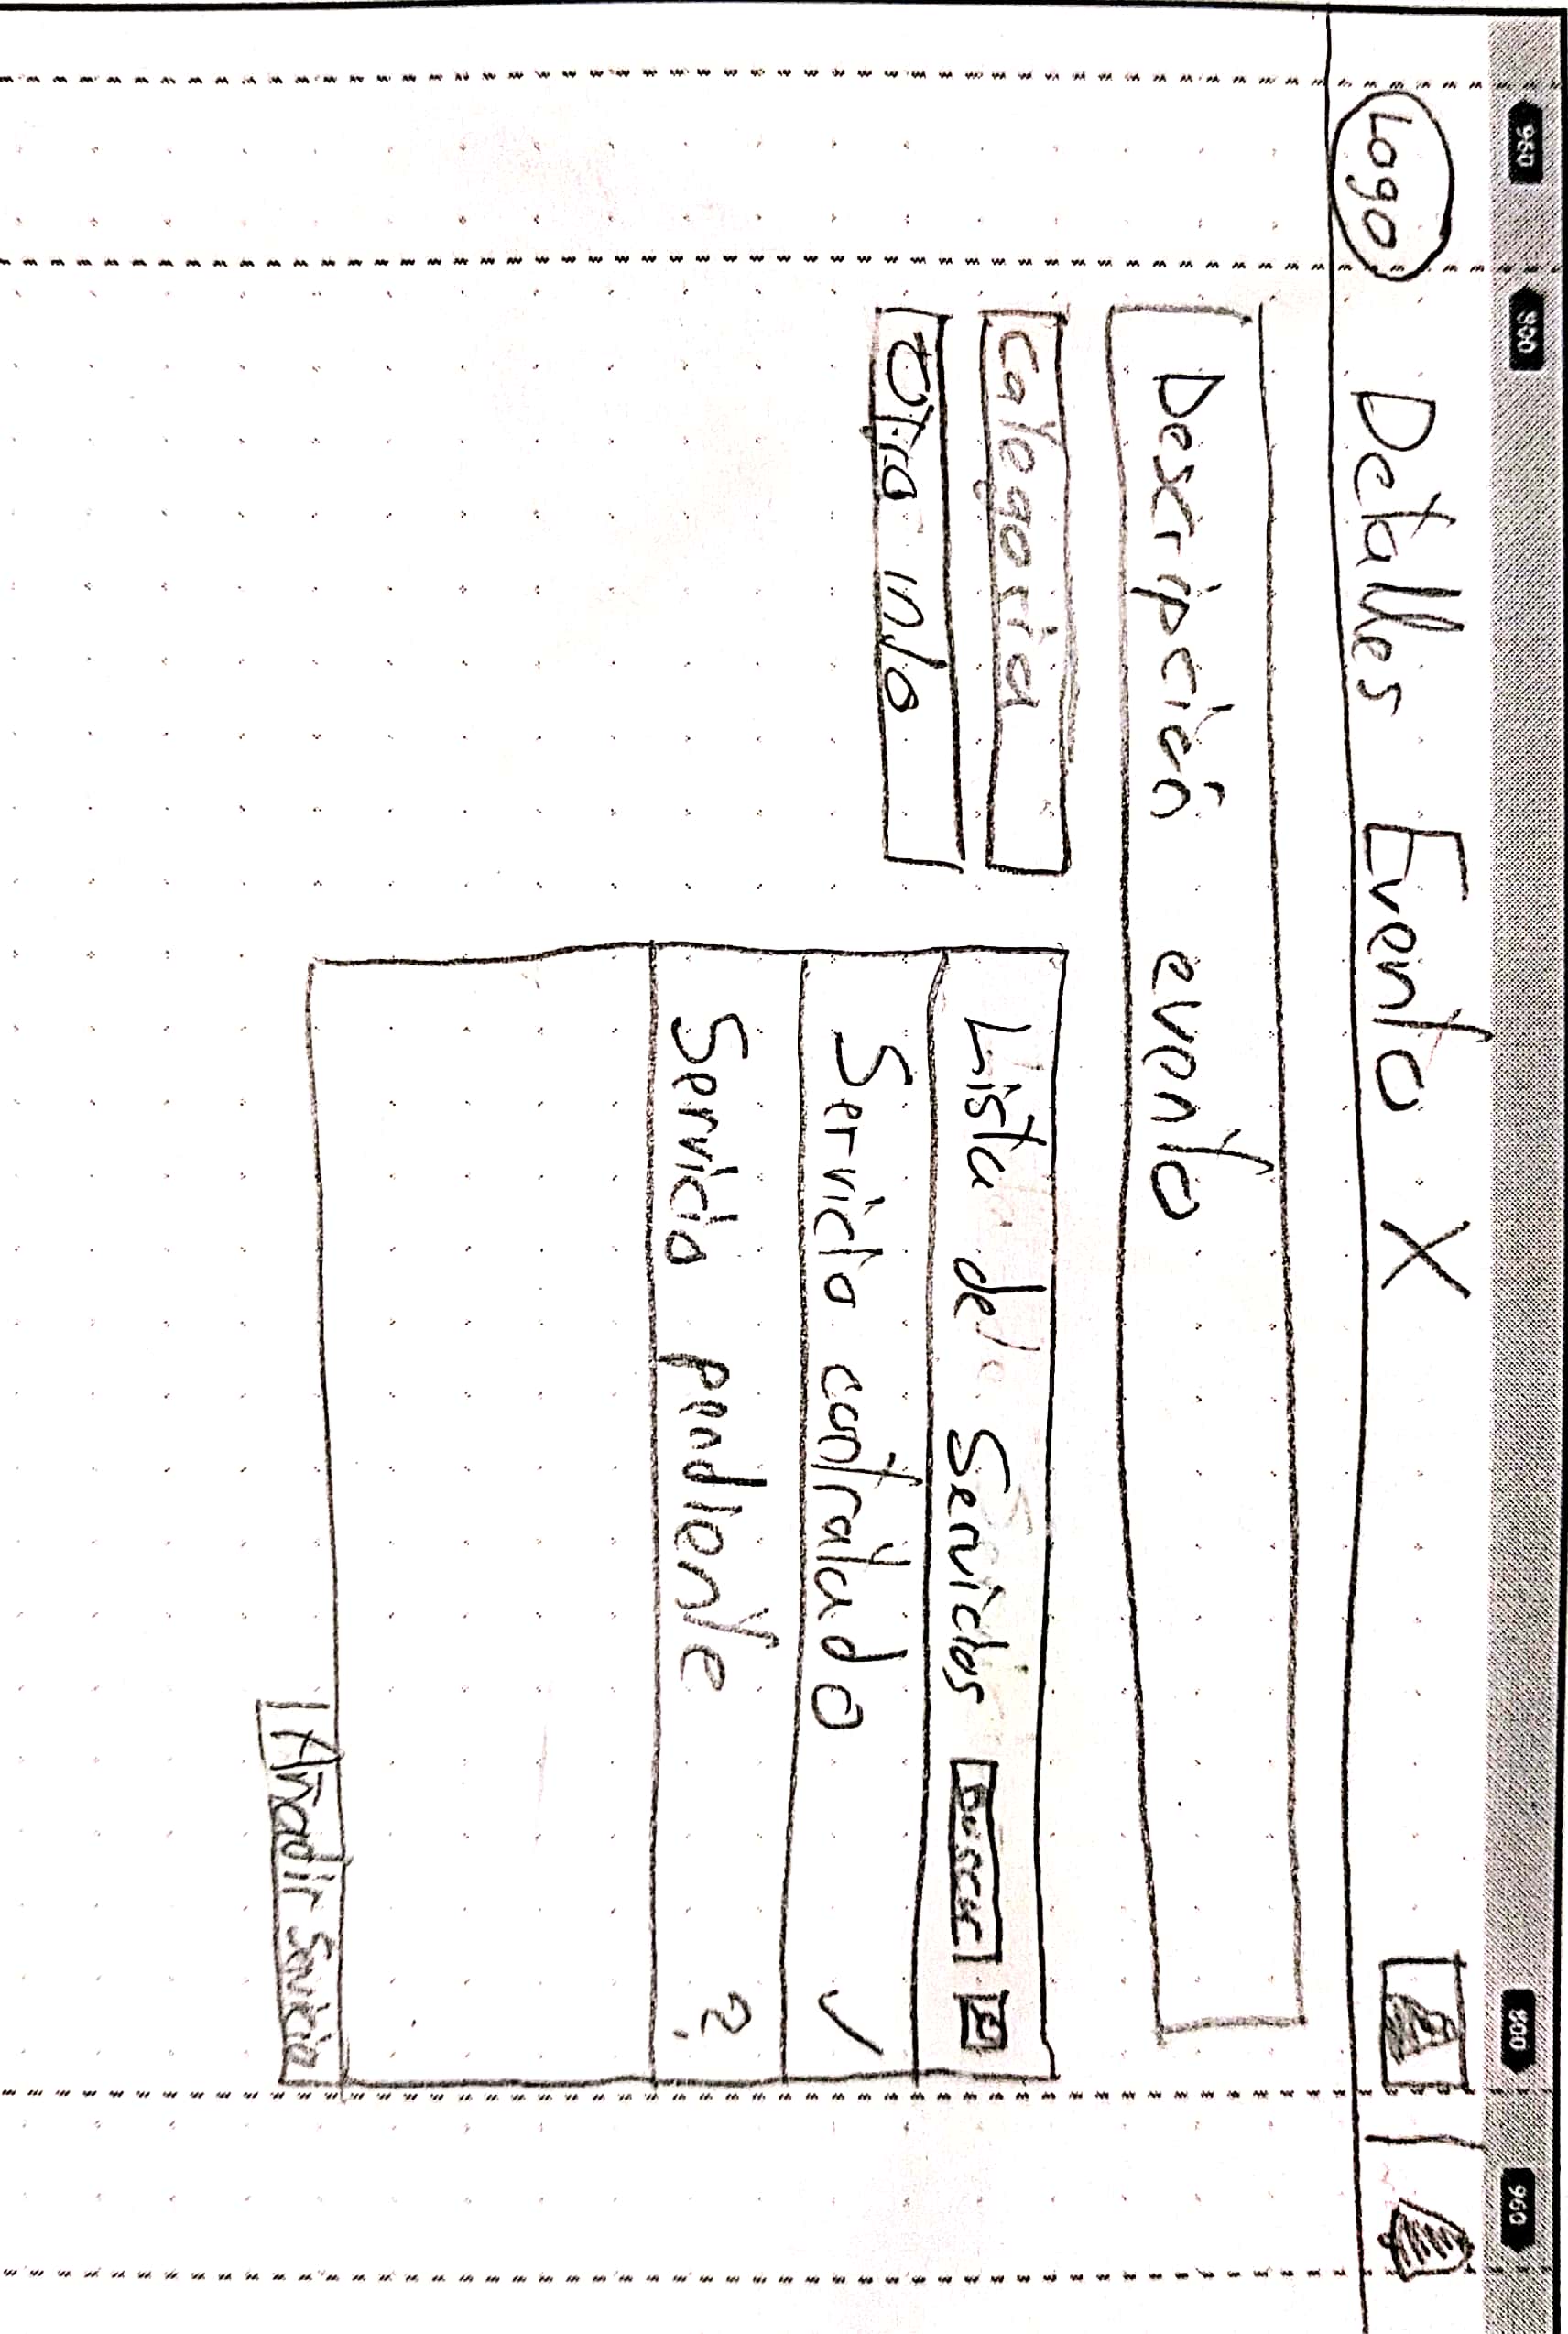 960 800 800 960
Logo Detalles Evento X
Descripción evento
Categoria
Otra info
Lista de Servicios Buscar
Servicio contratado ✓
Servicio pendiente ?
Añadir Servicio